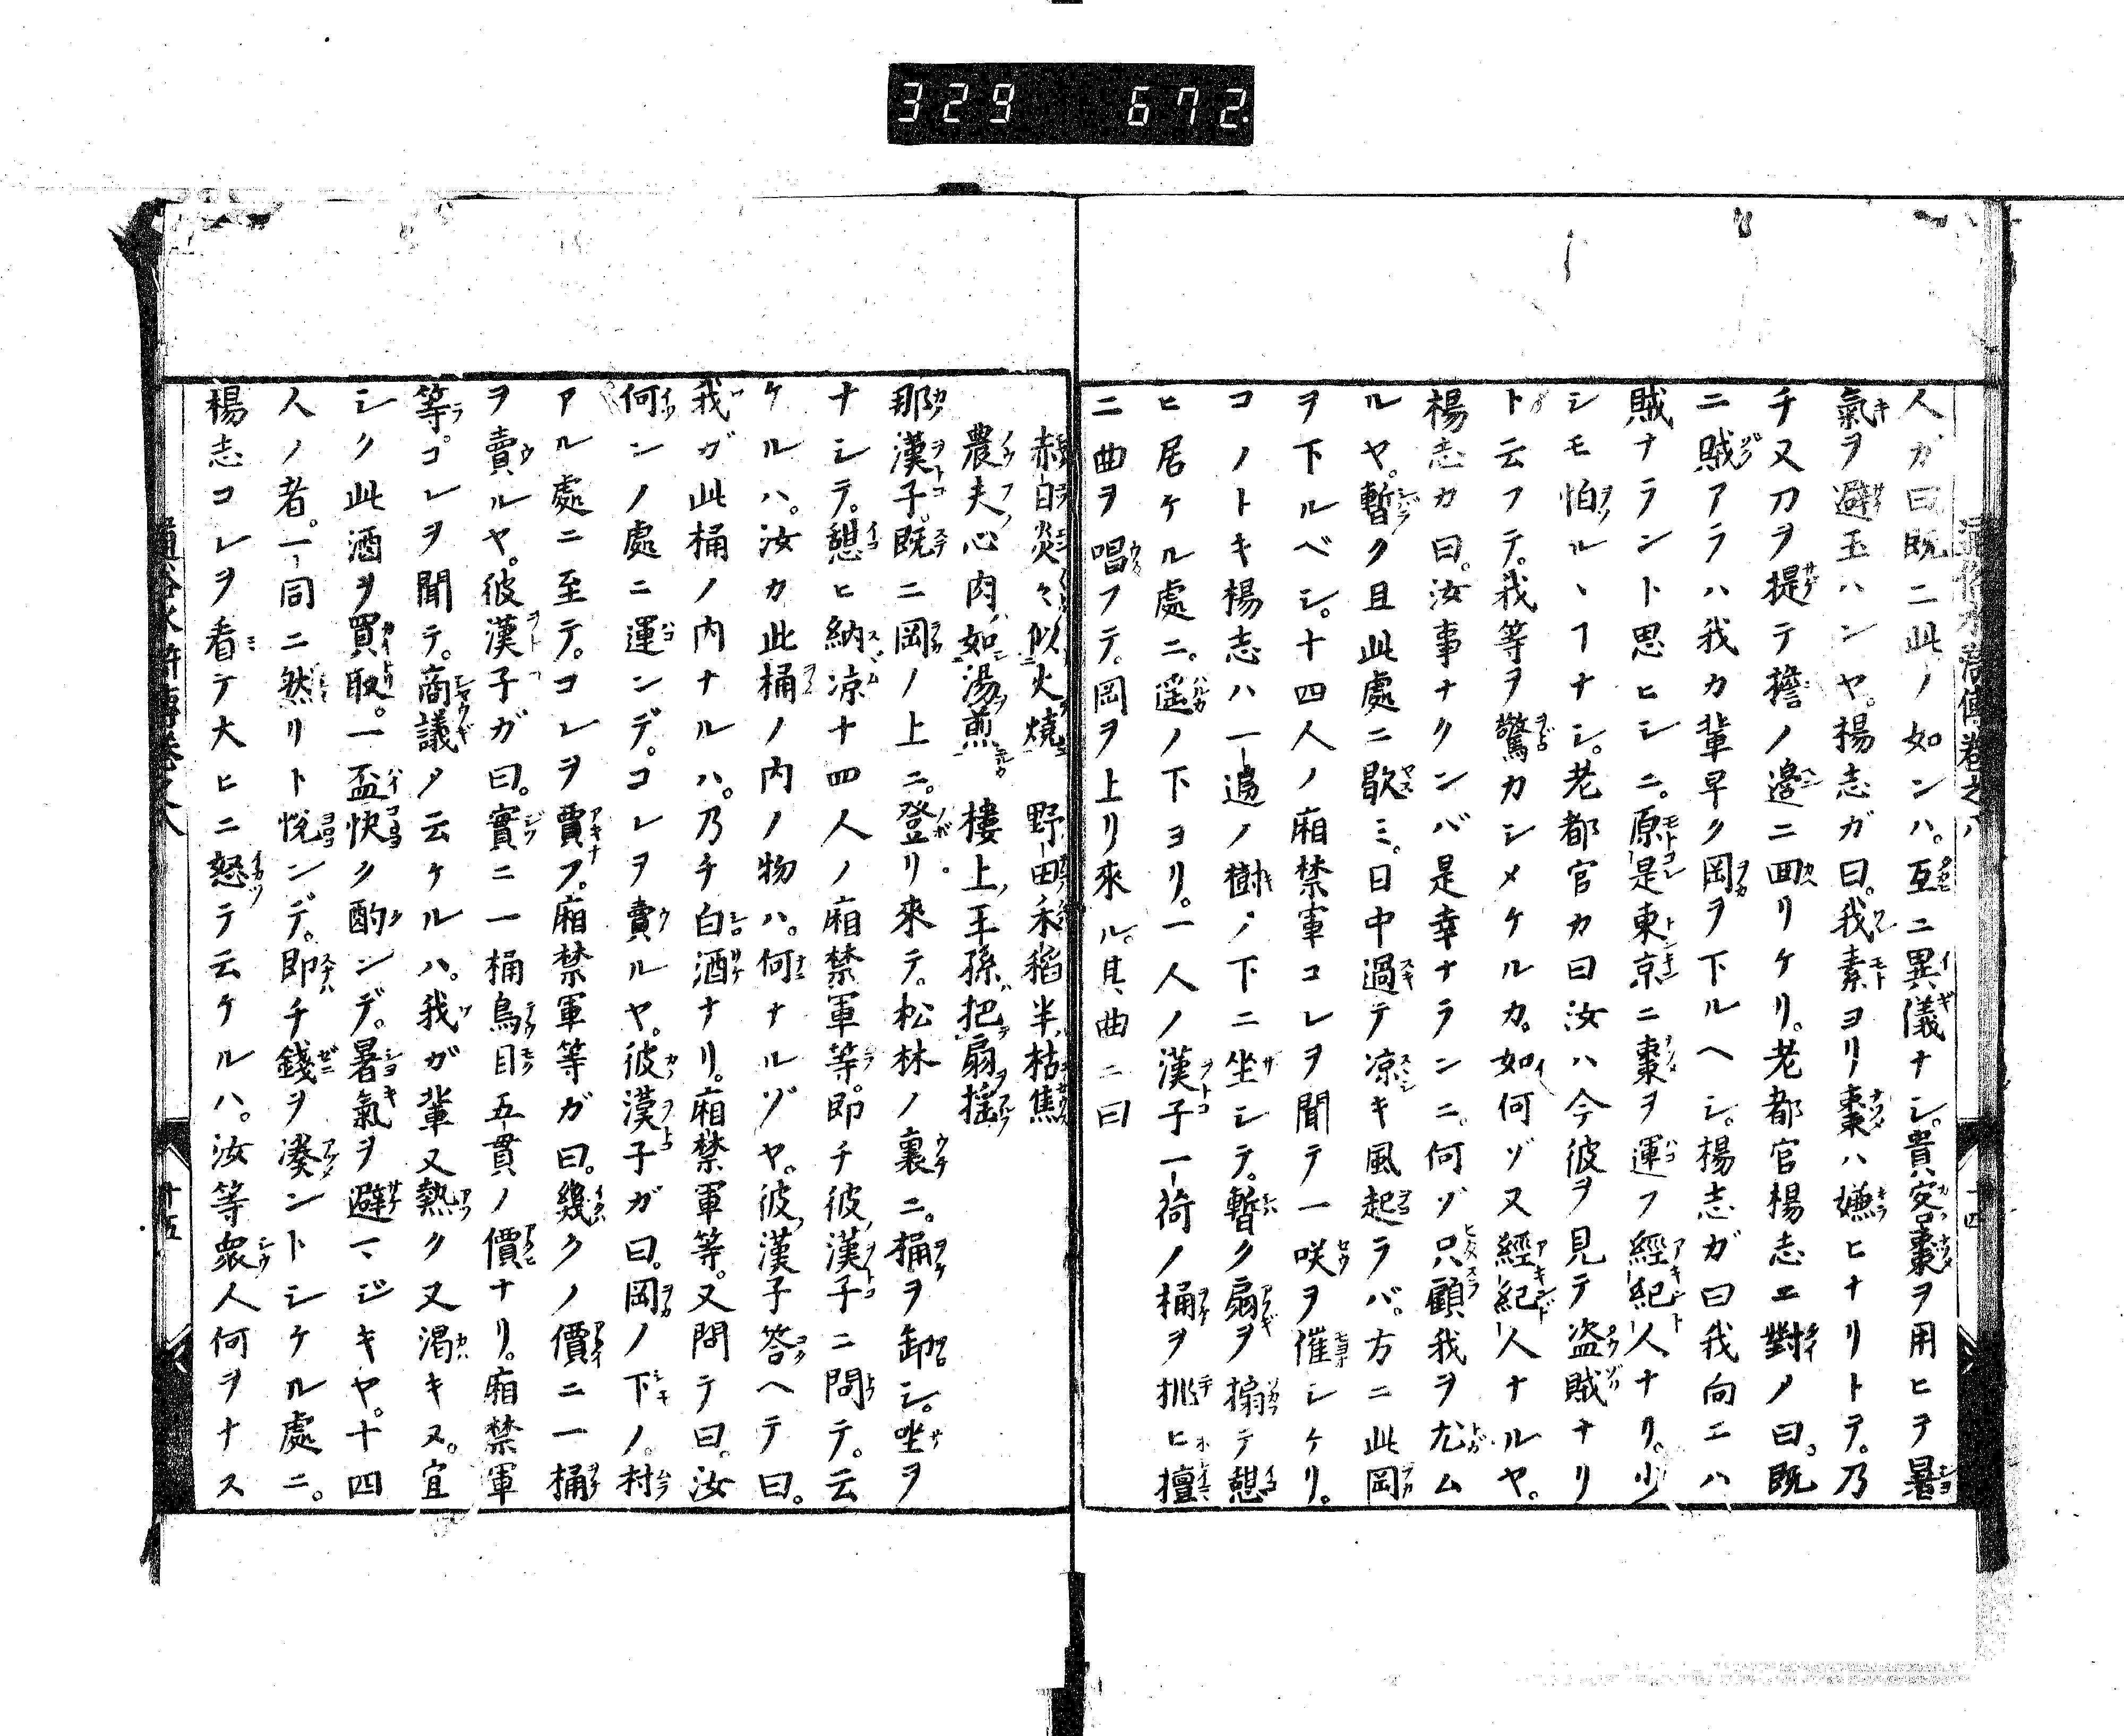 329 672
通俗水滸傳卷之八
十四
人カ曰既ニ此ノ如ンハ。互ニ異儀ナシ。貴客棗ヲ用ヒテ暑
氣ヲ避玉ハンヤ。楊志ガ曰。我素ヨリ棗ハ嫌ヒナリトテ。乃
チ又刀ヲ提テ擔ノ邊ニ回リケリ。老都官楊志ニ對ノ曰。既
ニ賊アラハ我カ輩早ク岡ヲ下ルヘシ。楊志ガ曰我向ニハ
賊ナラント思ヒシニ。原是東京ニ棗ヲ運フ經紀人ナリ。少
シモ怕ルヽヿナシ。老都官カ曰汝ハ今彼ヲ見テ盗賊ナリ
ト云フテ。我等ヲ驚カシメケルカ。如何ゾ又經紀人ナルヤ。
楊志カ曰。汝事ナクンバ是幸ナランニ。何ゾ只顧我ヲ尤ム
ルヤ。暫ク且此處ニ歇ミ。日中過テ凉キ風起ラバ。方ニ此岡
ヲ下ルベシ。十四人ノ廂禁軍コレヲ聞テ一咲ヲ催シケリ。
コノトキ楊志ハ一邉ノ樹ノ下ニ坐シテ。暫ク扇ヲ搧テ憇
ヒ居ケル處ニ。遥ノ下ヨリ。一人ノ漢子一荷ノ桶ヲ挑ヒ擅
ニ曲ヲ唱フテ。岡ヲ上リ來ル。其曲ニ曰
赫日炎々似火燒 野田禾稻半枯焦
農夫心内如湯煎 樓上王孫把扇揺
那漢子。既ニ岡ノ上ニ。登リ來テ。松林ノ裏ニ。桶ヲ卸シ。坐ヲ
ナシテ。憩ヒ納凉十四人ノ廂禁軍等。即チ彼漢子ニ問テ。云
ケルハ。汝カ此桶ノ内ノ物ハ。何ナルゾヤ。彼漢子答ヘテ曰。
我ガ此桶ノ内ナルハ。乃チ白酒ナリ。廂禁軍等。又問テ曰。汝
何ンノ處ニ運ンデ。コレヲ賣ルヤ。彼漢子ガ曰。岡ノ下ノ。村
アル處ニ至テ。コレヲ賣フ。廂禁軍等ガ曰。幾クノ價ニ一桶
ヲ賣ルヤ。彼漢子ガ曰。實ニ一桶鳥目五貫ノ價ナリ。廂禁軍
等コレヲ聞テ。商議〆云ケルハ。我ガ輩又熱ク又渇キヌ。宜
シク此酒ヲ買取。一盃快ク酌ンデ。暑氣ヲ避マジキヤ。十四
人ノ者。一同ニ然リト悦ンデ。即チ錢ヲ湊ントシケル處ニ。
楊志コレヲ看テ大ヒニ怒テ云ケルハ。汝等衆人何ヲナス
通俗水滸傳卷之八
十五